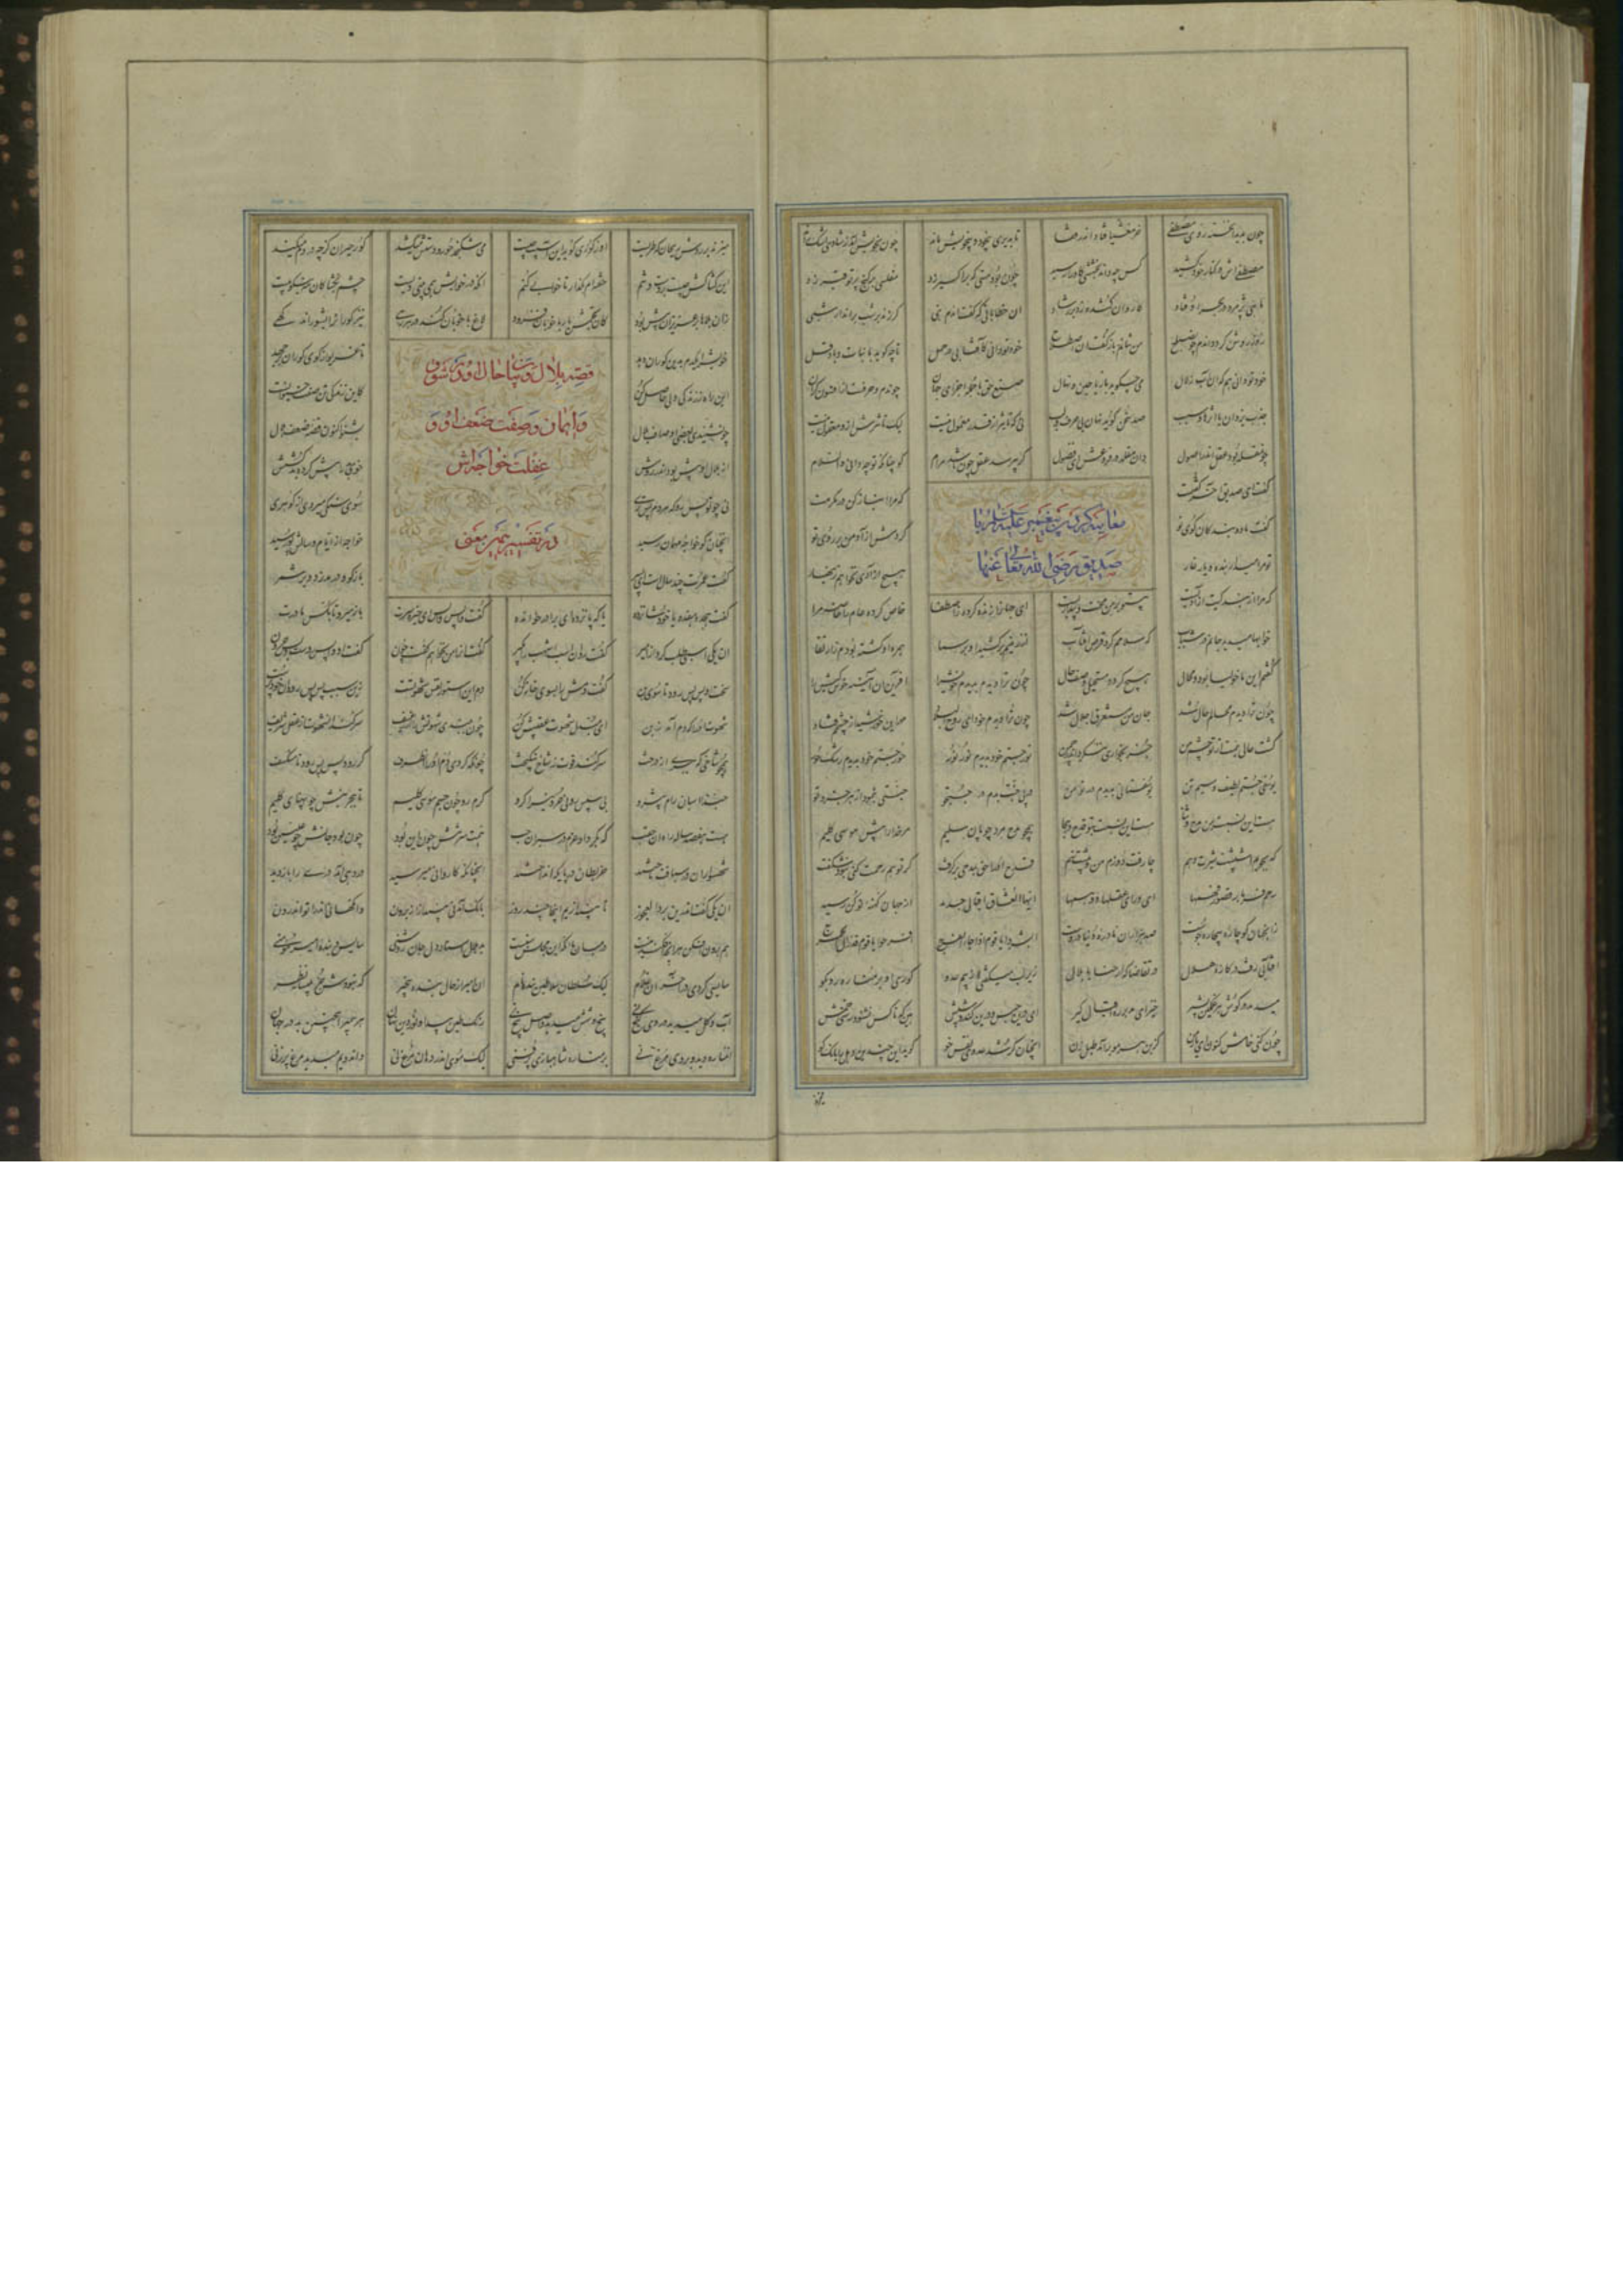 چون بدید آن خسته روی مصطفی خر مغشیا فتاد اندر قفا تا بدیری بیخود و بیخویش ماند چون بخویش آمد ز شادی اشک راند
مصطفی اش در کنار خود کشید کس چه داند بخششی کاو را رسید چون بود مسی که بر اکسیر زد مفلسی بر گنج پر توفیر زد
ماهی پژمرده در بحر اوفتاد کاروان گم شده زد بر رشاد آن خطاباتی که گفت آن دم نبی گر زند بر شب برآید از شبی
روز روشن گردد آن شب چون صباح من نتانم باز گفت آن اصطلاح خود تو دانی کافتابی در حمل تا چه گوید با نبات و با دقل
خود تو دانی هم که آن آب زلال می چه گوید با ریاحین و نهال صنع حق با جمله اجزای جهان چون دم و حرفست از افسون گران
جذب یزدان با اثرها و سبب صد سخن گوید نهان بی حرف و لب نی که تاثیر از قدر معمول نیست لیک تاثیرش ازو معقول نیست
چون مقلد بود عقل اندر اصول دان مقلد در فروعش ای فضول گر بپرسد عقل چون باشد مرام گو چنانکه تو ندانی والسلام
معاتبه کردن پیغمبر علیه السلام با
صدیق رضی الله تعالی عنها
گفت ای صدیق آخر گفتمت که مرا انباز کن در مکرمت
گفت ما دو بندگان کوی تو کردمش آزاد من بر روی تو
تو مرا میدار بنده و یار غار هیچ آزادی نخواهم زینهار
که مرا از بندگیت آزادیست بیتو بر من محنت و بیدادیست ای جهان را زنده کرده ز اصطفا خاص کرده عام را خاصه مرا
خوابها میدید جانم در شباب که سلامم کرد قرص آفتاب از زمینم برکشید او بر سما همره او گشته بودم ز ارتقا
گفتم این ماخولیا بود و محال هیچ گردد مستحیلی وصف حال چون ترا دیدم بدیدم خویش را آفرین آن آینه خوش کیش را
چون ترا دیدم محالم حال شد جان من مستغرق اجلال شد چون ترا دیدم خود ای روح البلاد مهر این خورشید از چشمم فتاد
گشت عالی همت از تو چشم من جز بخواری ننگرد اندر چمن نور جستم خود بدیدم نور نور حور جستم خود بدیدم رشک حور
یوسفی جستم لطیف و سیم تن یوسفستانی بدیدم در تو من در پی جنت بدم در جستجو جنتی بنمود از هر جزو تو
هست این نسبت بمن مدح و ثنا هست این نسبت بتو قدح و هجا همچو مدح مرد چوپان سلیم مر خدا را پیش موسی کلیم
که بجویم اشپشت شیرت دهم چارقت دوزم من و پیشت نهم قدح او را حق بمدحی برگرفت گر تو هم رحمت کنی نبود شگفت
رحم فرما بر قصور فهمها ای ورای عقلها و وهمها ایها العشاق اقبالی جدید از جهان کهنه نو کن رسید
زان جهان کو چاره بیچاره جوست صد هزاران نادره دنیا دروست ابشروا یا قوم اذ جاء الفرج افرحوا یا قوم قد زال الحرج
آفتابی رفت در کازه هلال در تقاضا که ارحنا یا بلال زیر لب میگفتی از بیم عدو کوری او بر مناره رو بگو
میدمد در گوش هر غمگین بشیر خیز ای مدبر ره اقبال گیر ای درین حبس و درین گند و شپش هین که تا کس نشنود رستی خمش
چون کنی خامش کنون ای یار من کز بن هر مو برآمد طبل زن آنچنان کر شد عدو خو گوید این چندین دهل را بانگ کو
میزند بر روش ریحان که طریست او ز کوری گوید این آسیب چیست می شکنجد حور و دستش میکشد کور حیران کز چه دردم میکند
این کشاکش چیست بر دست و تنم خفته ام بگذار تا خوابی کنم آنکه در خوابش همی جویی ویست چشم بگشا کان مه نیکو پیست
زان بلاها بر عزیزان بیش بود کان تجمش یار با خوبان فزود لاغ با خوبان کند در هر رهی نیز کوران را بشوراند گهی
خویش را یکدم بدین کوران دهد تا غریو از کوی کوران بر جهد
قصه بلال و بیان حال او در شوق
و ایمان و صفت ضعف او و
غفلت خواجه اش
در تفسیر همین معنی
این راه ز زندگی دل حاصل کن کاین زندگی تن صفت حیوانست
چون شنیدی بعضی اوصاف بلال بشنو اکنون قصه ضعف هلال
از بلال او بیش بود اندر روش خوی بد را بیش کرده بد کشش
نی چو تو پس رو که هر دم پس تری سوی سنگی میروی از گوهری
آنچنان کو خواجه را مهمان رسید خواجه از ایام و سالش بر رسید
گفت عمرت چند سالست ای پسر بازگو و در مدزد و بر شمر
گفت هجده هفده یا خود شانزده یا که پانزده ای برادر خوانده گفت واپس واپس ای خیره سرت باز میرو تا بکس مادرت
آن یکی اسبی طلب کرد از امیر گفت رو آن اسب اشهب را بگیر گفت آن را من نخواهم گفت چون گفت او واپس روست و بس حرون
سخت پس پس رود تا سوی بن گفت دمش را بسوی خانه کن دم این استور نفست شهوتست زین سبب پس پس رود آن خودپرست
شهوت او را که دم آمد ز بن ای مبدل شهوت عقبیش کن چون ببندی شهوتش را از رغیف سر کند آن شهوت از عقل شریف
همچو شاخی که ببری از درخت سر کند قوت ز شاخ نیکبخت چونکه کردی دم او را آن طرف گر رود پس پس رود تا مکتنف
حبذا اسبان رام پیش رو نی سپس رو نی حرونی را گرو گرم رو چون جسم موسی کلیم تا به بحرینش چو پهنای گلیم
هست هفصد ساله راه آن حقب که بکرد او عزم در سیران حب همت سیر تنش چون این بود
شهسواران در سباقت تاختند خربطان در پایگه انداختند آنچنانکه کاروانی میرسید در دهی آمد دری را باز دید
آن یکی گفت اندرین برد العجوز تا بیندازیم اینجا چند روز بانگ آمد نی بینداز از برون وانگهانی اندرآ تو اندرون
هم برون افکن هر آنچه افکندنیست در میا با آن که این مجلس سنیست بد هلال استاد دل جان روشنی سایس و بنده امیر مومنی
سایسی کردی در آخر آن غلام لیک سلطان سلاطین بنده نام آن امیر از حال بنده بیخبر که نبودش جز بلیسانه نظر
آب و گل میدید و در وی گنج نی پنج و شش میدید و اصل پنج نی رنگ طین پیدا و نور دین نهان هر پیمبر این چنین بد در جهان
آن مناره دید و در وی مرغ نی بر مناره شاهبازی پر فنی لیک موی اندر دهان مرغ نی وان دوم میدید مرغ پرزنی